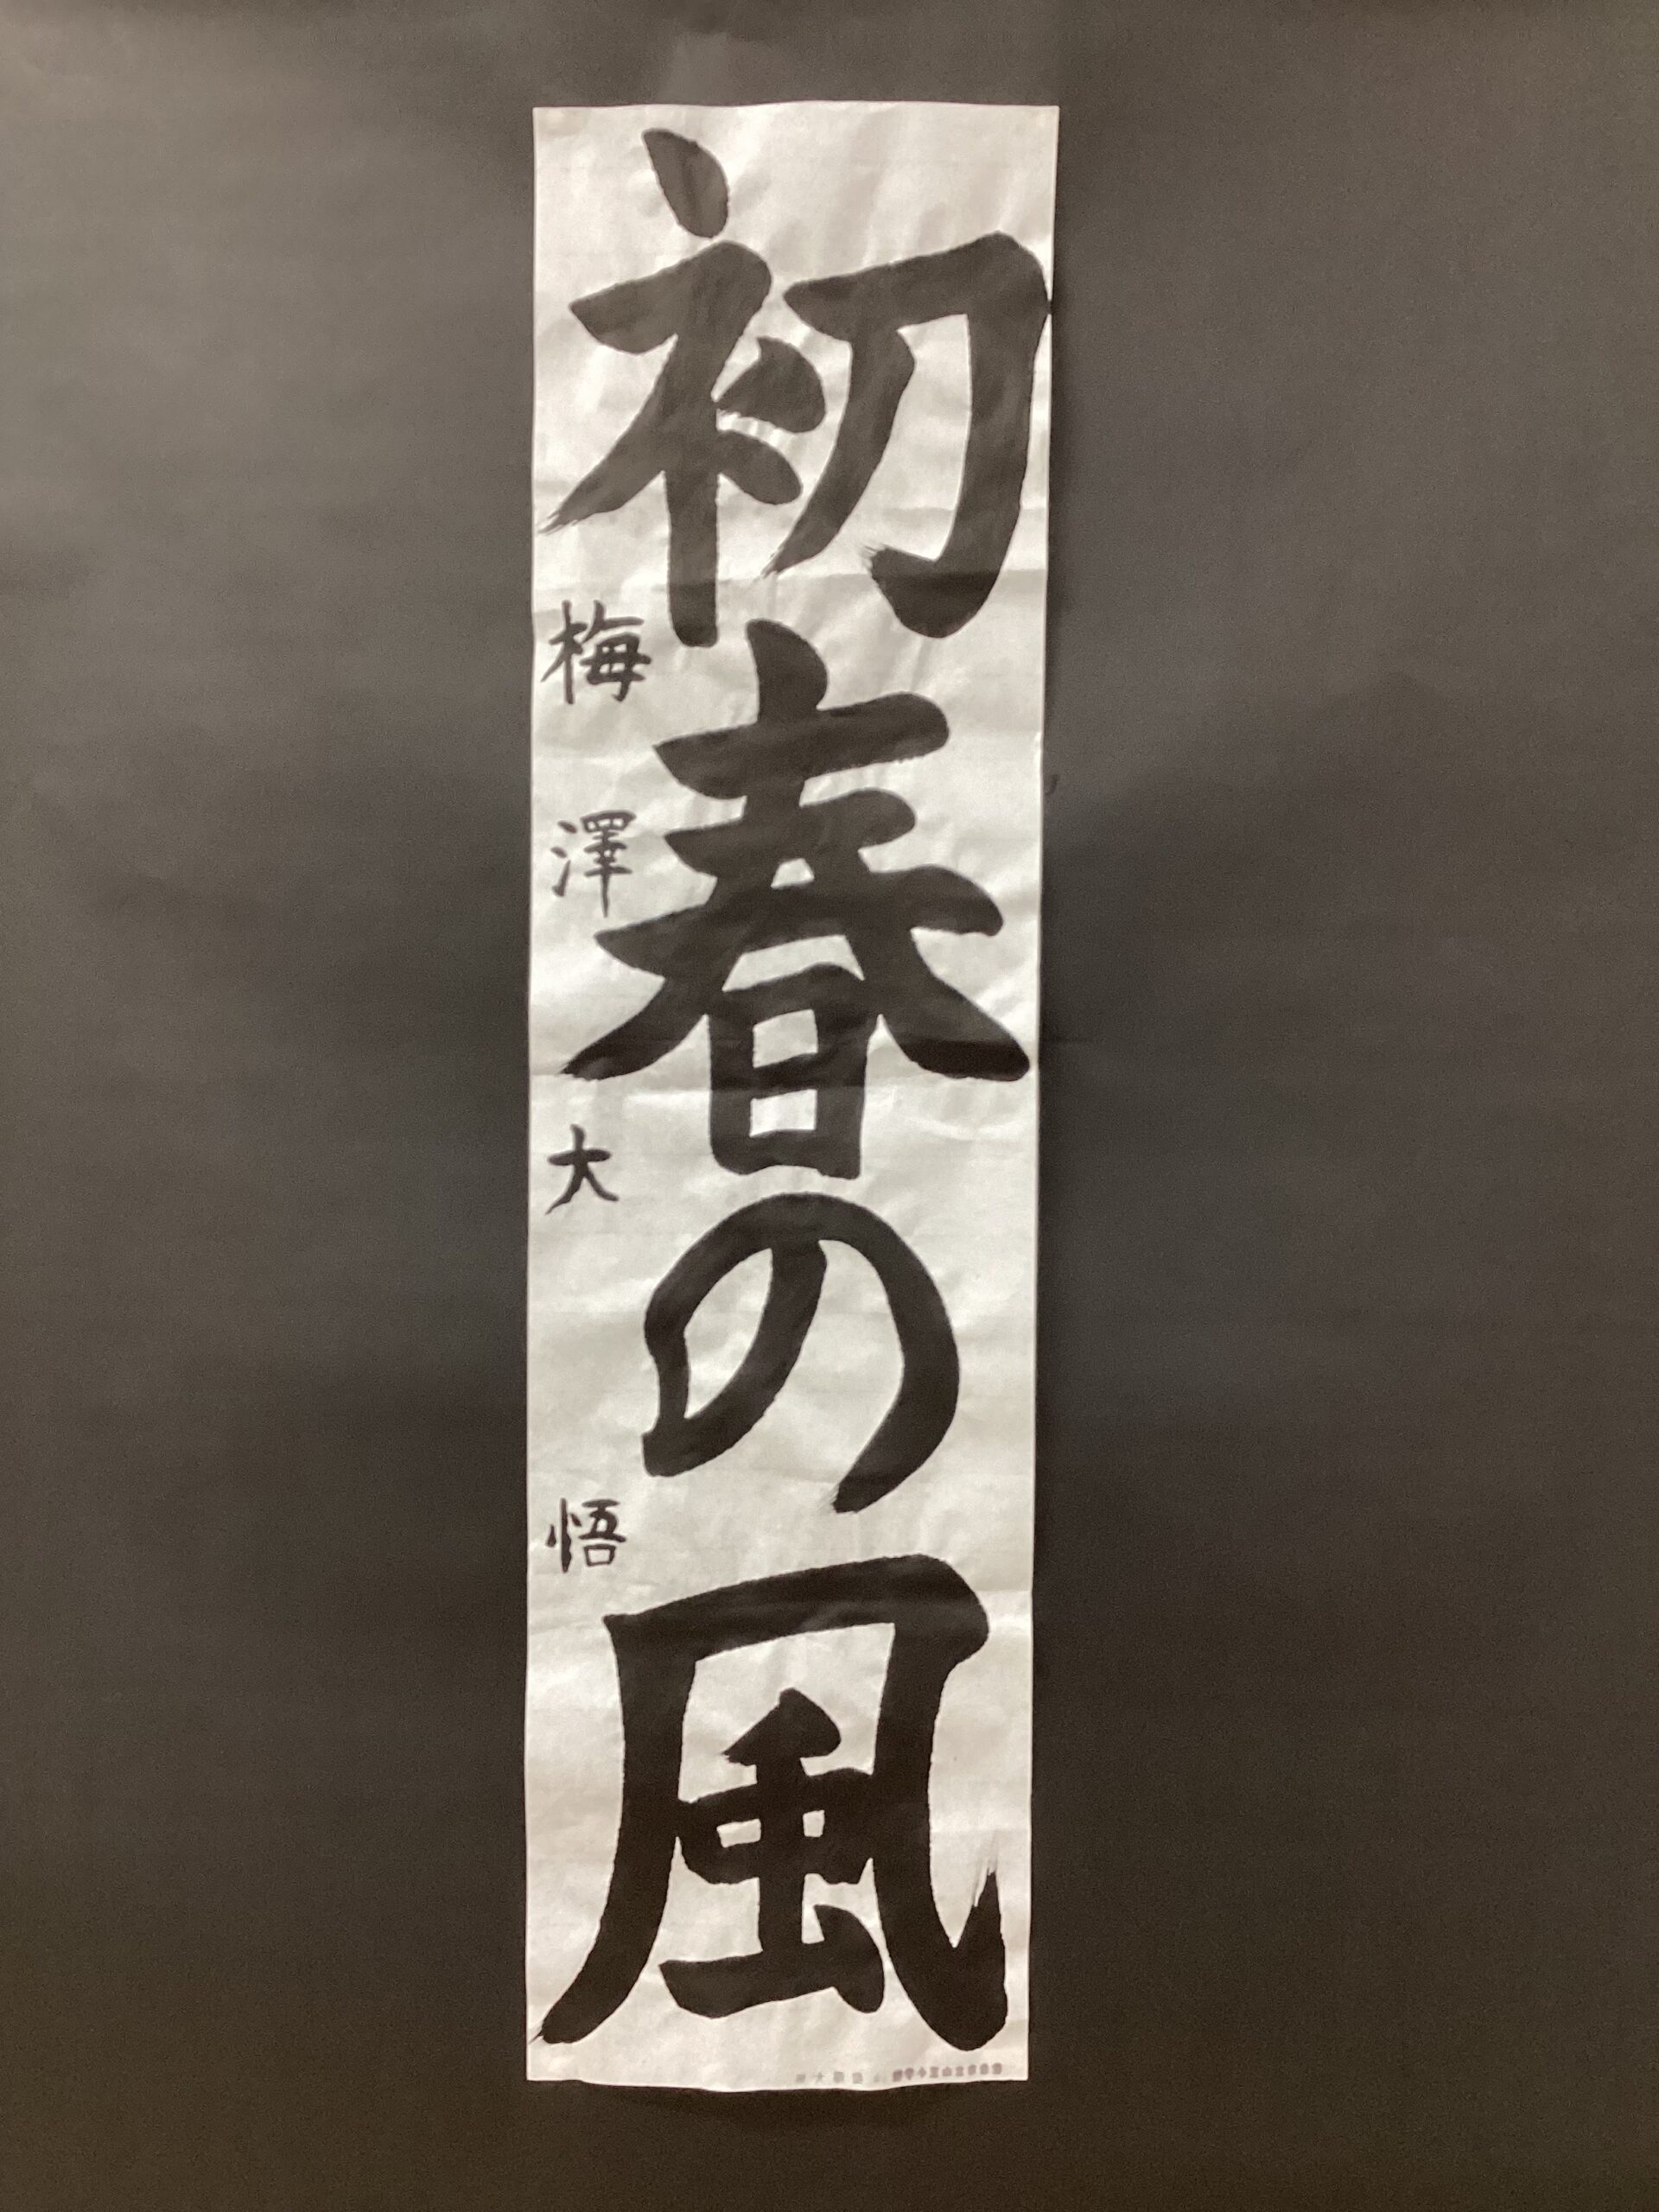 初春の風
梅澤大悟